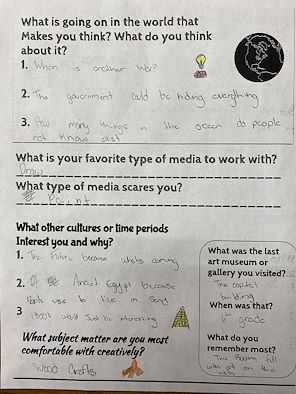 What is going on in the world that
Makes you think? What do you think
about it?
1. When is another War?
2. The government could be hiding everything
3. How many things in the ocean do people
not know exist
What is your favorite type of media to work with?
Draw
What type of media scares you?
Paint
What other cultures or time periods
Interest you and why?
1. The future because whats coming
2. Ancient Egypt because
People use to live in sand
3 1800s would Just be interesting
What subject matter are you most
comfortable with creatively?
Wood Crafts
What was the last
art museum or
gallery you visited?
The capital
building
When was that?
grade
What do you
remember most?
The Room full
with art on the
walls